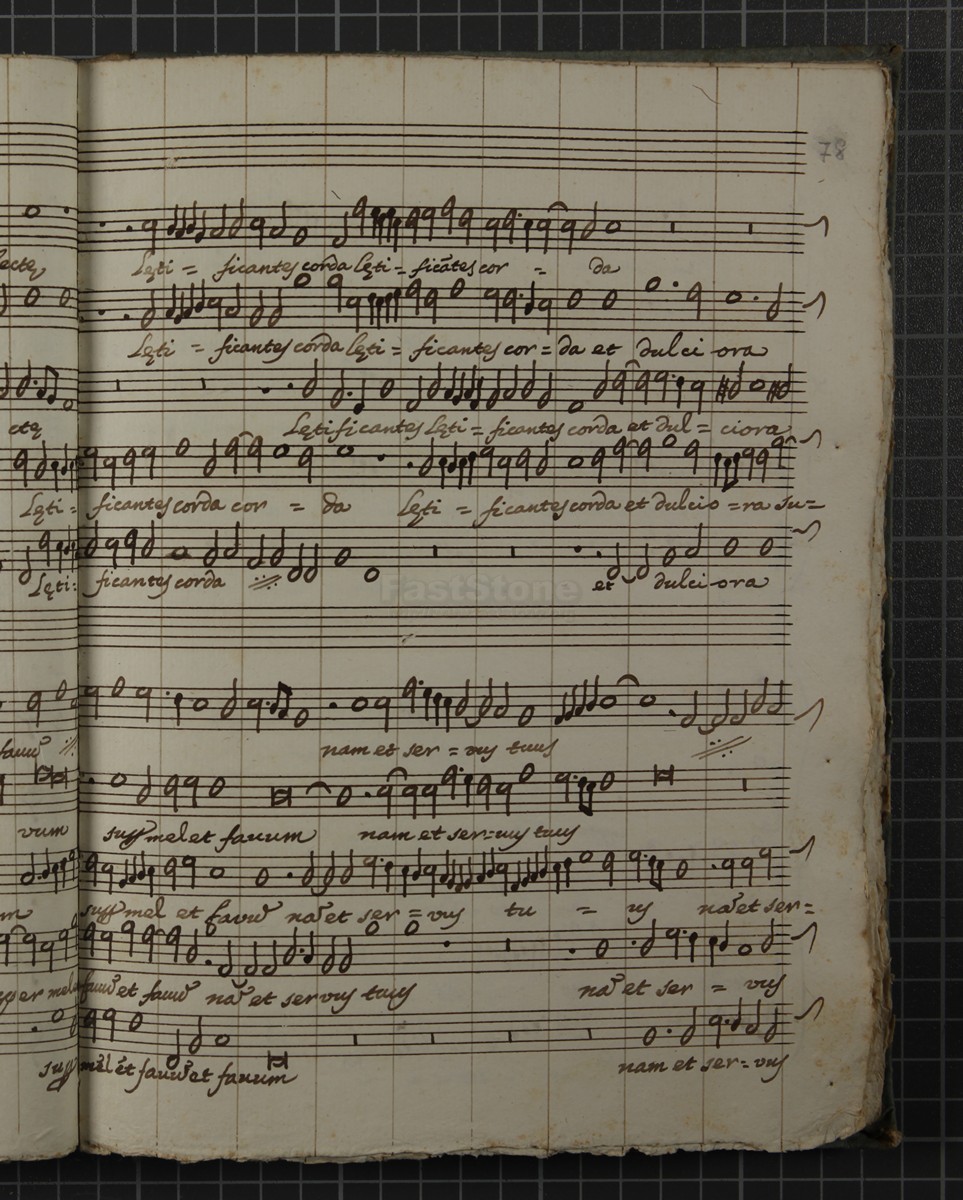 78
lectę Lęti = ficantes corda lęti = ficātes cor = da
Lęti = ficantes corda lęti = ficantes cor = da et dulci ora
ctę Lętificantes lęti = ficantes corda et dul = ciora
Lęti = ficantes corda cor = da Lęti = ficantes corda et dulcio = ra su =
Lęti: ficantes corda et dulci ora
FastStone
nam et ser = vus tuus
vum mel et fauum nam et ser = vus tuus
mel et fauū nā et ser = vus tu = us nā et ser =
mel fauū et fauū nā et servus tuus nā et ser = vus
mel et fauū et fauum nam et ser = vus